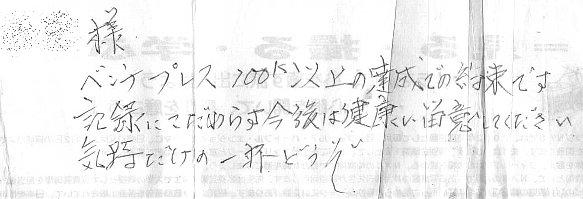 様
ベンチプレス100K以上の達成での約束です
記録にこだわらず今後は健康に留意してください
気持だけの一杯どうぞ